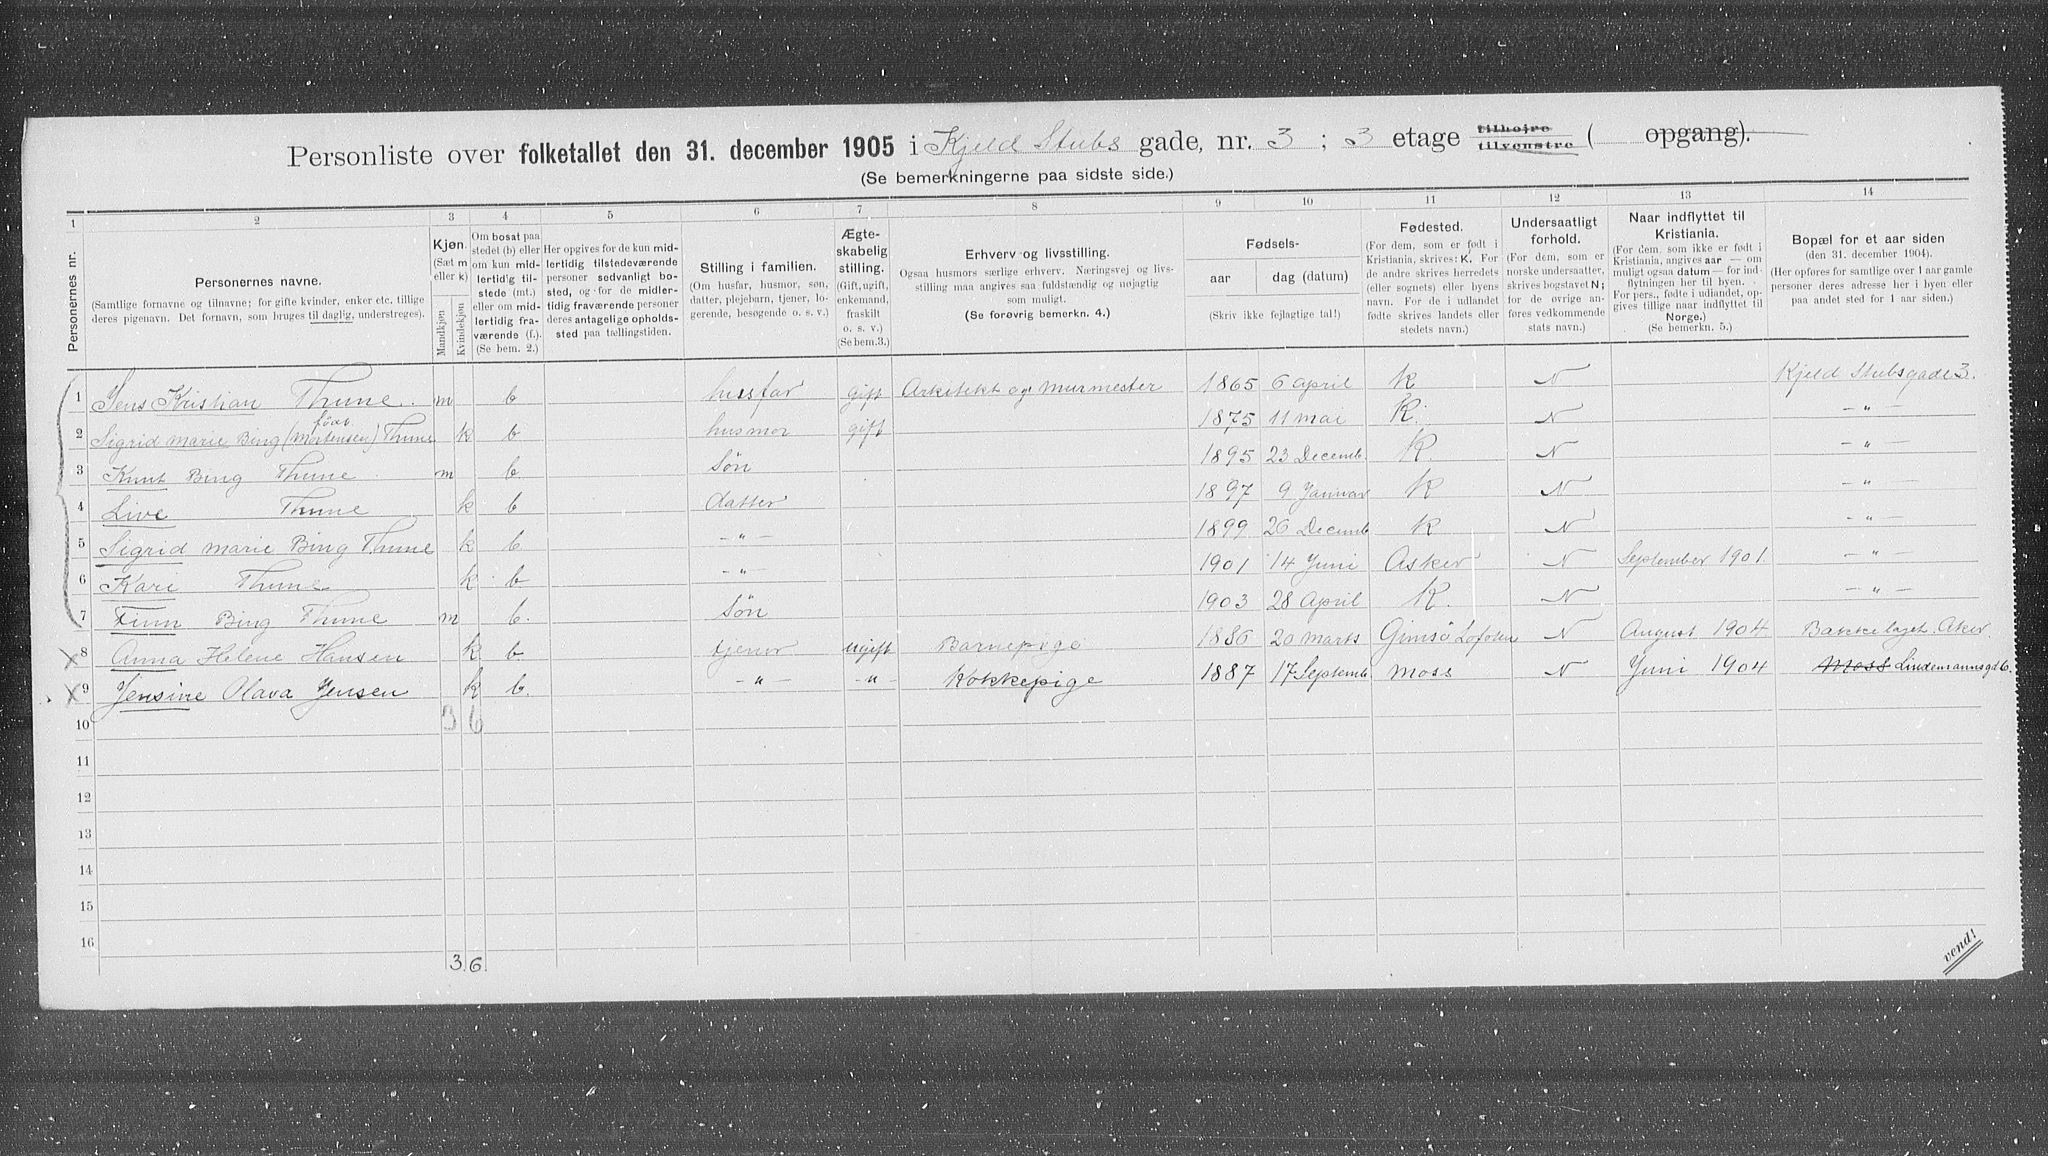 Personliste over folketallet den 31. december 1905 i Kjeld Stubs gade, nr. 3 ; 3 etage tilhøjre tilvenstre ( opgang).
(Se bemerkningerne paa sidste side.)
1 2 3 4 5 6 7 8 9 10 11 12 13 14
Personernes nr.
Personernes navne.
(Samtlige fornavne og tilnavne; for gifte kvinder, enker etc. tillige
deres pigenavn. Det fornavn, som bruges til daglig, understreges).
Kjøn.
(Sæt m
eller k)
Mandkjøn
Kvindekjøn
Om bosat paa
stedet (b) eller
om kun mid-
lertidig til-
stede (mt.)
eller om mid-
lertidig fra-
værende (f.).
(Se bem. 2.)
Her opgives for de kun mid-
lertidig tilstedeværende
personer sedvanligt bo-
sted, og for de midler-
tidig fraværende personer
deres antagelige opholds-
sted paa tællingstiden.
Stilling i familien.
(Om husfar, husmor, søn,
datter, plejebarn, tjener, lo-
gerende, besøgende o. s. v.)
Ægte-
skabelig
stilling.
(Gift, ugift,
enkemand,
fraskilt
o. s. v.)
(Se bem.3.)
Erhverv og livsstilling.
Ogsaa husmors særlige erhverv. Næringsvej og livs-
stilling maa angives saa fuldstændig og nøjagtig
som muligt.
(Se forøvrig bemerkn. 4.)
Fødsels-
aar
dag (datum)
(Skriv ikke fejlagtige tal!)
Fødested.
(For dem, som er født i
Kristiania, skrives: K. For
de andre skrives herredets
(eller sognets) eller byens
navn. For de i udlandet
fødte skrives landets eller
stedets navn.)
Undersaatligt
forhold.
(For dem, som er
norske undersaatter,
skrives bogstavet N;
for de øvrige an-
føres vedkommende
stats navn.)
Naar indflyttet til
Kristiania.
(For dem, som ikke er født i
Kristiania, angives aar — om
muligt ogsaa datum — for ind-
flytningen her til byen.
For pers., fødte i udlandet, op-
gives tillige naar indflyttet til
Norge.)
(Se bemerkn. 5.)
Bopæl for et aar siden
(den 31. december 1904).
(Her opføres for samtlige over 1 aar gamle
personer deres adresse her i byen eller
paa andet sted for 1 aar siden.)
1 Jens Kristian Thune. m b husfar gift Arkitekt og murmester 1865 6 april K N Kjeld Stubsgade 3.
født
2 Sigrid Marie Bing (Mortensen) Thune k b husmor gift 1875 11 mai K. N - " -
3 Knut Bing Thune m b Søn 1895 23 Decemb. K. N - " -
4 Live Thune k b datter 1897 9 Januar K N - " -
5 Sigrid Marie Bing Thune k b - " - 1899 26 Decemb K N - " -
6 Kari Thune k b - " - 1901 14 Juni Asker N September 1901. - " -
7 Finn Bing Thune m b. Søn 1903 28 April K. N - " -
x 8 Anna Helene Hansen k b tjener ugift Barnepige 1886 20 marts Gimsø Lofoten N August 1904 Bakkelaget, Aker.
x 9 Jensine Olava Jensen k b. - " - - " - Kokkepige 1887 17 Septemb. Moss N Juni 1904 Moss Lindemannsgd 6.
10 3 6
11
12
13
14
15
16
3 6.
vend!